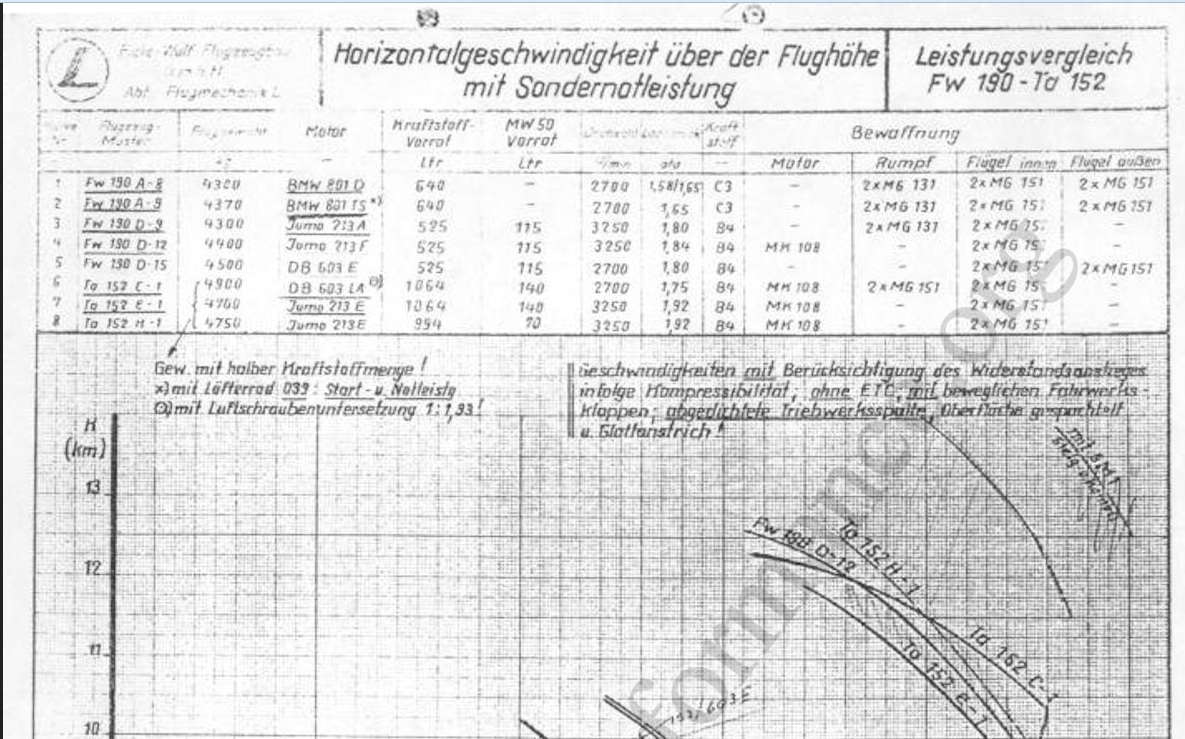 Focke-Wulf Flugzeugbau
G.m.b.H.
Abt. Flugmechanik L
Horizontalgeschwindigkeit über der Flughöhe
mit Sondernotleistung
Leistungsvergleich
Fw 190 - Ta 152
Flugzeug- Muster Fluggewicht Motor Kraftstoff- Vorrat MW50 Vorrat Drehzahl Ladedruck Kraft stoff Bewaffnung
kg – Ltr Ltr U/min ata – Motor Rumpf Flügel innen Flügel außen
1 Fw 190 A-8 4300 BMW 801 D 640 – 2700 1,58/1,65 C3 – 2xMG 131 2xMG 151 2xMG 151
2 Fw 190 A-9 4370 BMW 801 TS x) 640 – 2700 1,65 C3 – 2xMG 131 2xMG 151 2xMG 151
3 Fw 190 D-9 4300 Jumo 213 A 525 115 3250 1,80 B4 – 2xMG 131 2xMG 151 –
4 Fw 190 D-12 4400 Jumo 213 F 525 115 3250 1,84 B4 MK 108 – 2xMG 151 –
5 Fw 190 D-15 4500 DB 603 E 525 115 2700 1,80 B4 – – 2xMG 151 2xMG 151
6 Ta 152 C-1 4900 DB 603 LA 1064 140 2700 1,75 B4 MK 108 2xMG 151 2xMG 151 –
7 Ta 152 E-1 4700 Jumo 213 E 1064 140 3250 1,92 B4 MK 108 – 2xMG 151 –
8 Ta 152 H-1 4750 Jumo 213 E 994 70 3250 1,92 B4 MK 108 – 2xMG 151 –
Gew. mit halber Kraftstoffmenge !
x) mit Lüfterrad 039 : Start- u. Notleistg
mit Luftschraubenuntersetzung 1:1,93 !
Geschwindigkeiten mit Berücksichtigung des Widerstandsanstieges
infolge Kompressibilität, ohne ETC, mit beweglichen Fahrwerks-
klappen; abgedichtete Triebwerksspalte, Oberfläche gespachtelt
u. Glattanstrich !
H
(km)
13
12
11
10
mit GM1
Fw 190 D-12
Ta 152 H-1
Ta 152 C-1
Ta 152 E-1
/603E
formance.org